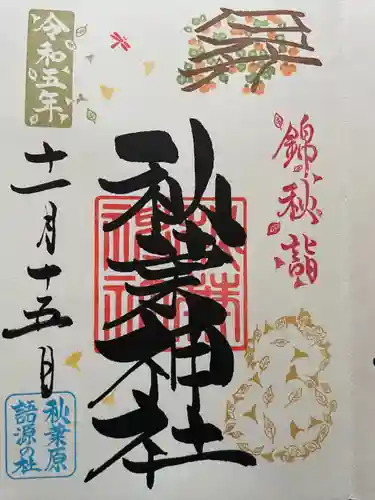 錦秋詣
秋葉神社
令和五年
十一月十五日
秋葉原
語源の社